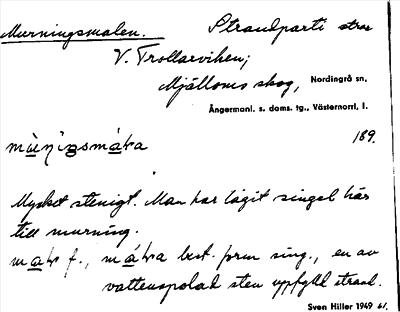 Murningsmalen. Strandparti
V. Trollarviken;
Mjälloms skog, Nordingrå sn,
Ångermanl. s. doms. tg., Västernorrl. l.
189.
Mycket stenigt. Man har tagit singel här
till murning.
best. form sing., en av
vattenspolad sten uppfylld strand.
Sven Hiller 1949